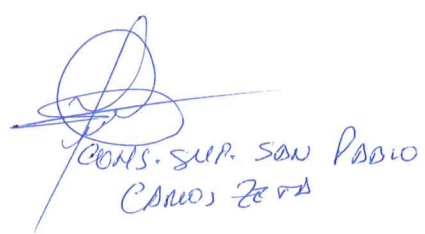 CONS. SUP. SAN PABLO
CARLOS ZETA